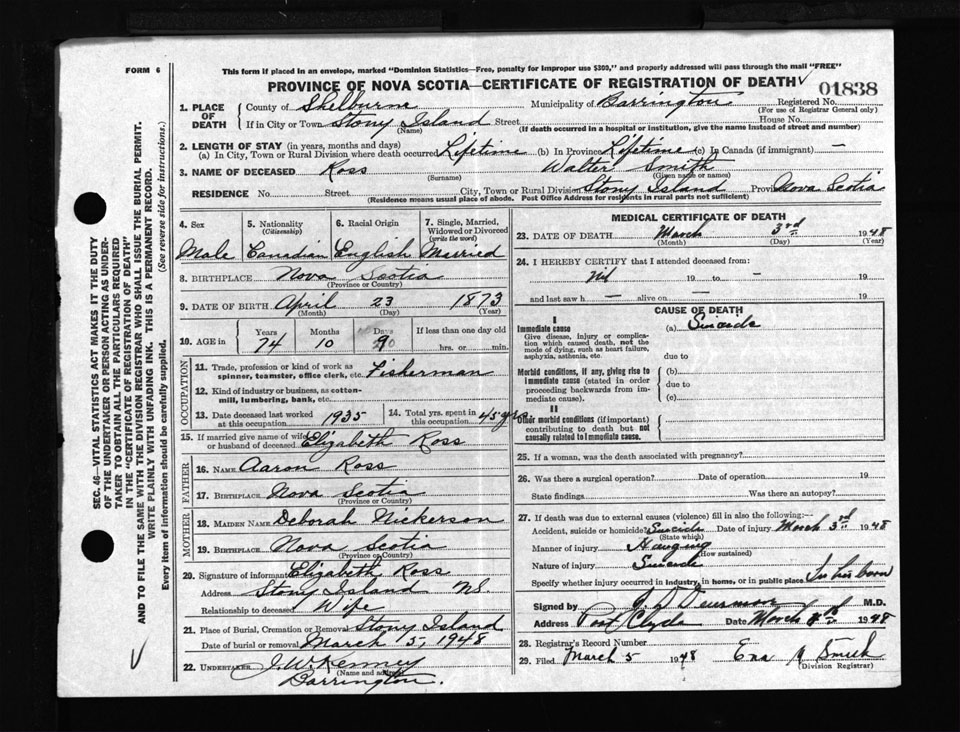 FORM 6
This form if placed in an envelope, marked "Dominion Statistics—Free, penalty for improper use $300," and properly addressed will pass through the mail "FREE"
PROVINCE OF NOVA SCOTIA—CERTIFICATE OF REGISTRATION OF DEATH
01838
1. PLACE OF DEATH County of Shelburne Municipality of Barrington Registered No.
(For use of Registrar General only)
If in City or Town Stony Island Street House No.
(Name) (If death occurred in a hospital or institution, give the name instead of street and number)
2. LENGTH OF STAY (in years, months and days)
(a) In City, Town or Rural Division where death occurred Lifetime (b) In Province Lifetime (c) In Canada (if immigrant) —
3. NAME OF DECEASED Ross Walter Smith
(Surname) (Given name or names)
RESIDENCE No. Street City, Town or Rural Division Stony Island Province Nova Scotia
(Residence means usual place of abode. Post Office Address for residents in rural parts not sufficient)
4. Sex 5. Nationality (Citizenship) 6. Racial Origin 7. Single, Married, Widowed or Divorced (write the word)
Male Canadian English Married
8. BIRTHPLACE Nova Scotia
(Province or Country)
9. DATE OF BIRTH April 23 1873
(Month) (Day) (Year)
10. AGE in Years Months Days If less than one day old
74 10 9 hrs. or min.
OCCUPATION
11. Trade, profession or kind of work as spinner, teamster, office clerk, etc. Fisherman
12. Kind of industry or business, as cotton-mill, lumbering, bank, etc.
13. Date deceased last worked at this occupation 1935 14. Total yrs. spent in this occupation 45 yrs
15. If married give name of wife or husband of deceased Elizabeth Ross
FATHER
16. NAME Aaron Ross
17. BIRTHPLACE Nova Scotia
(Province or Country)
MOTHER
18. MAIDEN NAME Deborah Nickerson
19. BIRTHPLACE Nova Scotia
(Province or Country)
20. Signature of informant Elizabeth Ross
Address Stony Island N.S.
Relationship to deceased Wife
21. Place of Burial, Cremation or Removal Stony Island
Date of burial or removal March 5, 1948
22. UNDERTAKER J. W. Kenney
(Name and address)
Barrington.
MEDICAL CERTIFICATE OF DEATH
23. DATE OF DEATH March 3rd 1948
(Month) (Day) (Year)
24. I HEREBY CERTIFY that I attended deceased from:
Nil 19 to — 19
and last saw h — alive on — 19
CAUSE OF DEATH
I
Immediate cause (a) Suicide
Give disease, injury or complication which caused death, not the mode of dying, such as heart failure, asphyxia, asthenia, etc.
due to
Morbid conditions, if any, giving rise to immediate cause (stated in order proceeding backwards from immediate cause).
(b)
due to
(c)
II
Other morbid conditions (if important) contributing to death but not causally related to immediate cause.
25. If a woman, was the death associated with pregnancy?
26. Was there a surgical operation? Date of operation 19
State findings Was there an autopsy?
27. If death was due to external causes (violence) fill in also the following:—
Accident, suicide or homicide? Suicide Date of injury March 3rd 1948
(State which)
Manner of injury Hanging
(How sustained)
Nature of injury Suicide
Specify whether injury occurred in industry, in home, or in public place. In his barn
Signed by M.D.
Address Port Clyde Date March 1948
28. Registrar's Record Number
29. Filed March 5 1948 Ena Smith
(Division Registrar)
SEC. 46—VITAL STATISTICS ACT MAKES IT THE DUTY
OF THE UNDERTAKER OR PERSON ACTING AS UNDER-
TAKER TO OBTAIN ALL THE PARTICULARS REQUIRED
IN THE "CERTIFICATE OF REGISTRATION OF DEATH"
AND TO FILE THE SAME WITH THE DIVISION REGISTRAR WHO SHALL ISSUE THE BURIAL PERMIT.
WRITE PLAINLY WITH UNFADING INK. THIS IS A PERMANENT RECORD.
Every item of information should be carefully supplied. (See reverse side for instructions.)